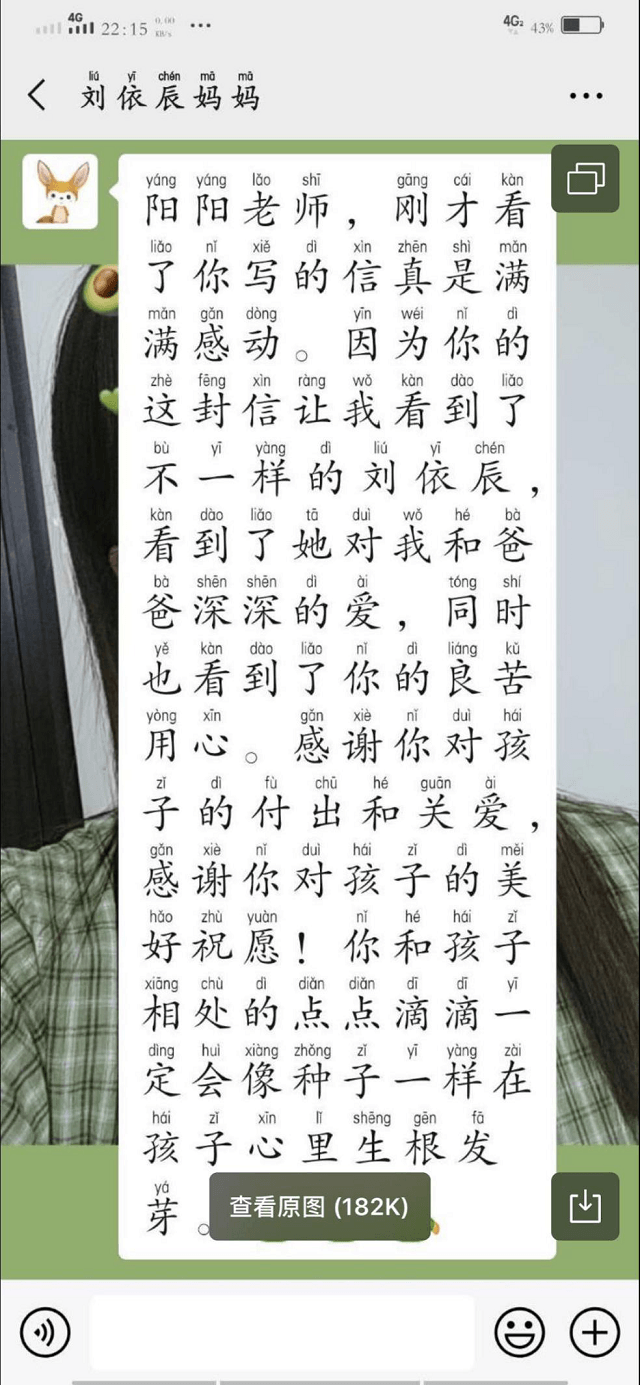 4G 22:15 0.00 KB/s ... 4G2 43%
liú yī chén mā mā
刘依辰妈妈
yáng yáng lǎo shī gāng cái kàn
阳阳老师，刚才看
liǎo nǐ xiě dì xìn zhēn shì mǎn
了你写的信真是满
mǎn gǎn dòng yīn wéi nǐ dì
满感动。因为你的
zhè fēng xìn ràng wǒ kàn dào liǎo
这封信让我看到了
bù yī yàng dì liú yī chén
不一样的刘依辰，
kàn dào liǎo tā duì wǒ hé bà
看到了她对我和爸
bà shēn shēn dì ài tóng shí
爸深深的爱，同时
yě kàn dào liǎo nǐ dì liáng kǔ
也看到了你的良苦
yòng xīn gǎn xiè nǐ duì hái
用心。感谢你对孩
zǐ dì fù chū hé guān ài
子的付出和关爱，
gǎn xiè nǐ duì hái zǐ dì měi
感谢你对孩子的美
hǎo zhù yuàn nǐ hé hái zǐ
好祝愿！你和孩子
xiāng chù dì diǎn diǎn dī dī yī
相处的点点滴滴一
dìng huì xiàng zhǒng zǐ yī yàng zài
定会像种子一样在
hái zǐ xīn lǐ shēng gēn fā
孩子心里生根发
yá
芽。
查看原图 (182K)